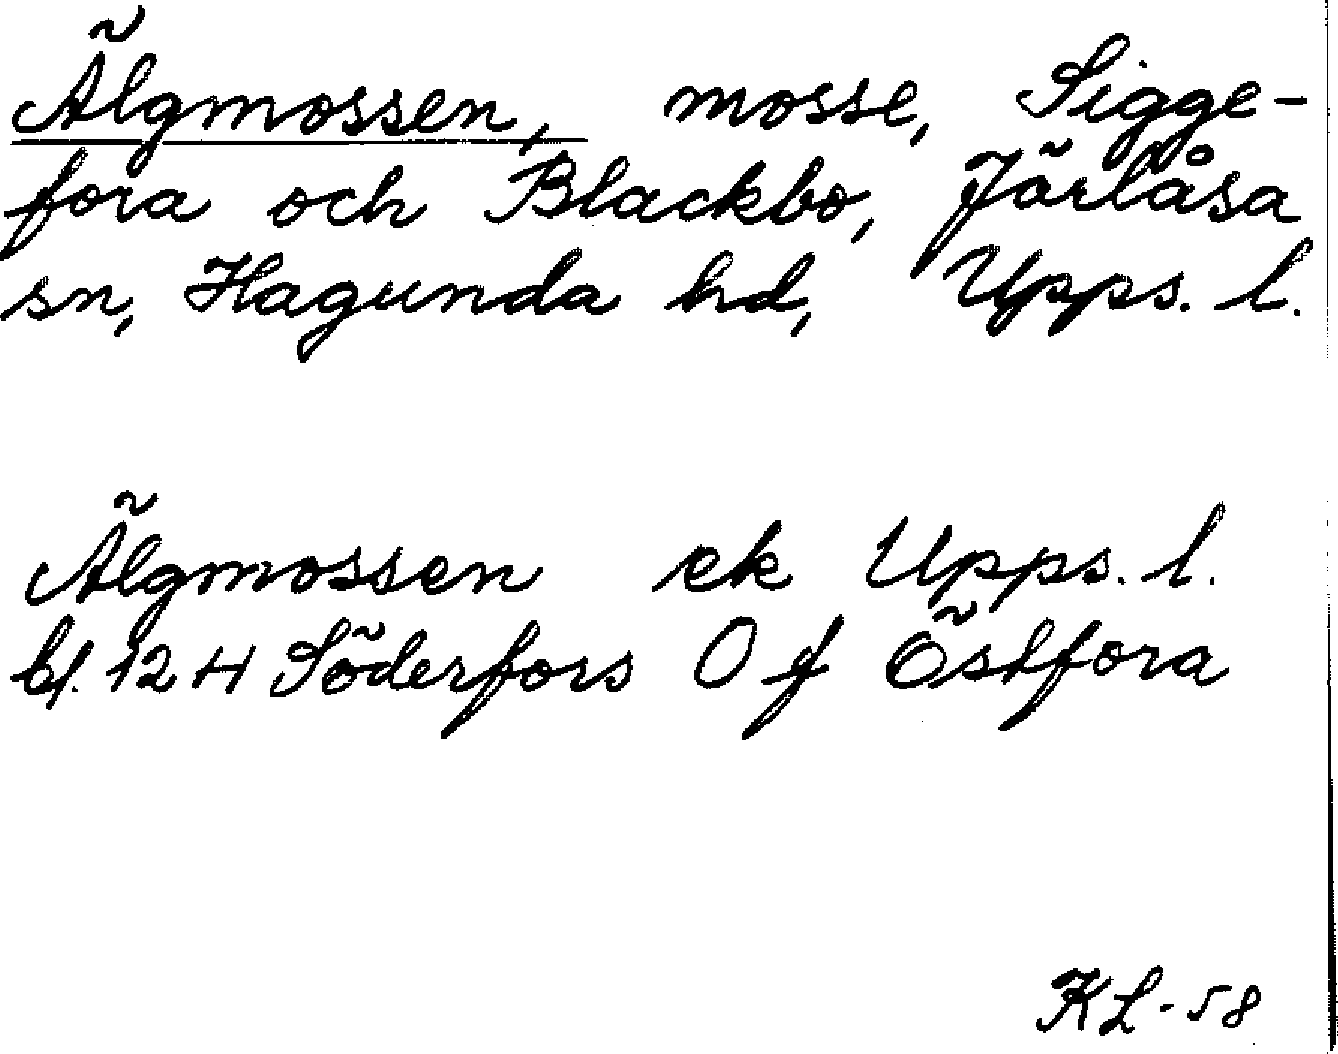 Älgmossen, mosse, Sigge-
fora och Blackbo, Järlåsa
sn, Hagunda hd, Upps. l.
Älgmossen ek Upps. l.
bl. 12 H Söderfors O f Östfora
KL-58